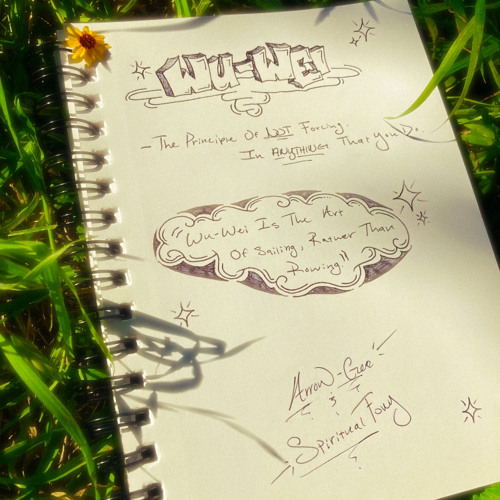 WU-WEI
- The Principle Of NOT Forcing
In ANYTHING That You Do.
"Wu-Wei Is The Art
Of Sailing, Rather Than
Rowing"
Arrow-Gee
&
Spiritual Tony